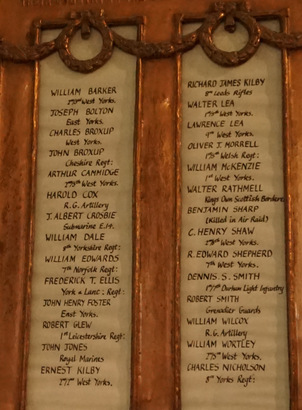 WILLIAM BARKER
West Yorks.
JOSEPH BOLTON
East Yorks.
CHARLES BROXUP
West Yorks.
JOHN BROXUP
Cheshire Regt:
ARTHUR CAMMIDGE
West Yorks.
HAROLD COX
R.G. Artillery
J. ALBERT CROSBIE
Submarine E.14.
WILLIAM DALE
8th Yorkshire Regt:
WILLIAM EDWARDS
7th Norfolk Regt:
FREDERICK T. ELLIS
York & Lanc: Regt:
JOHN HENRY FOSTER
East Yorks.
ROBERT GLEW
1st Leicestershire Regt:
JOHN JONES
Royal Marines
ERNEST KILBY
West Yorks.
RICHARD JAMES KILBY
8th Leeds Rifles
WALTER LEA
West Yorks.
LAWRENCE LEA
West Yorks.
OLIVER J. MORRELL
Welsh Regt:
WILLIAM McKENZIE
1st West Yorks.
WALTER RATHMELL
Kings Own Scottish Borderers
BENJAMIN SHARP
(Killed in Air Raid)
C. HENRY SHAW
West Yorks.
R. EDWARD SHEPHERD
West Yorks.
DENNIS. S. SMITH
Durham Light Infantry
ROBERT SMITH
Grenadier Guards
WILLIAM WILCOX
R.G. Artillery
WILLIAM WORTLEY
West Yorks.
CHARLES NICHOLSON
8th Yorks Regt: